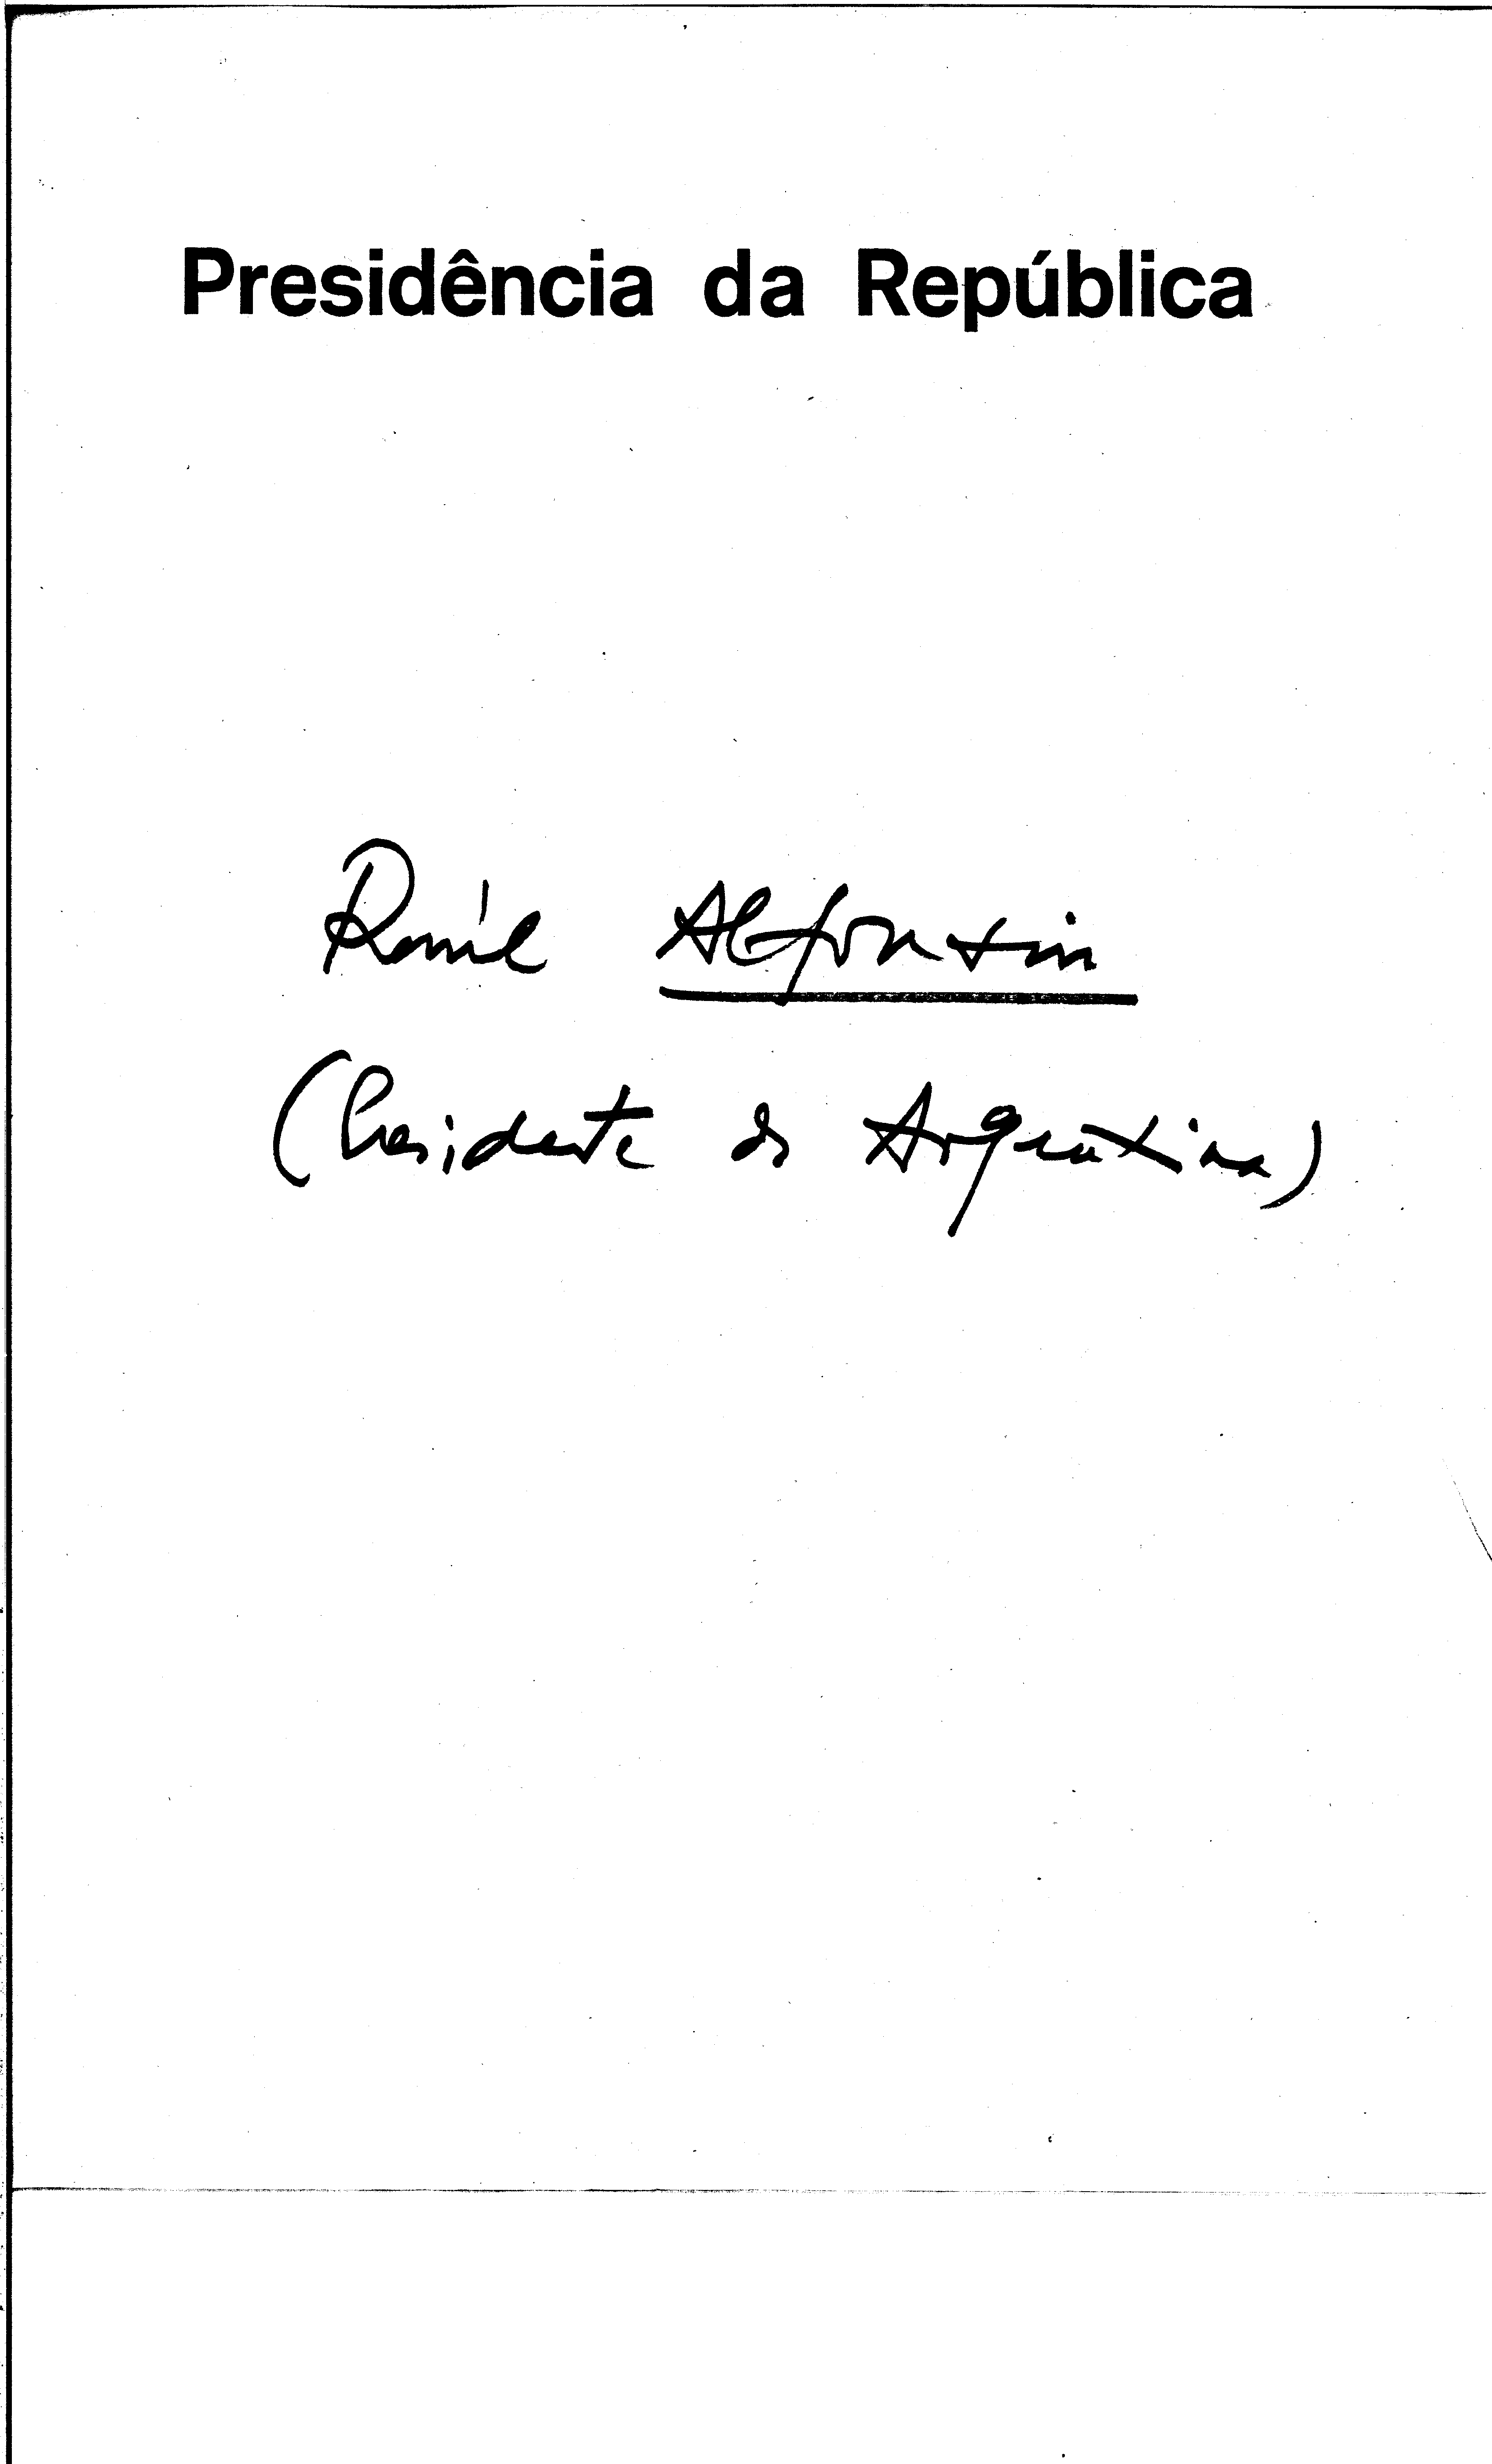 Presidência da República
Raúl Alfonsin
(Presidente da Argentina)